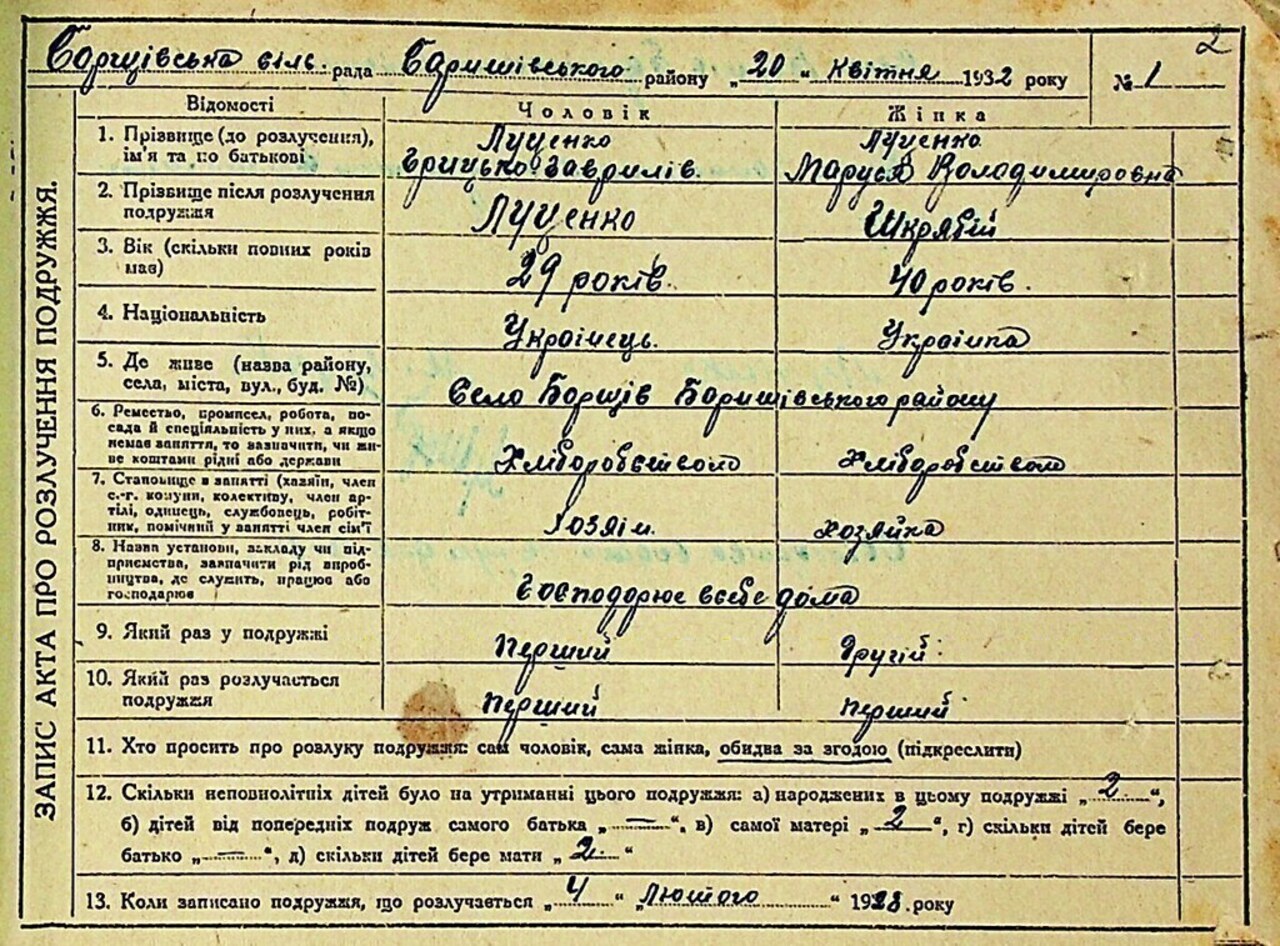 2
Борщівська сіль. рада Баришівського району „20“ квітня 1932 року № 1
ЗАПИС АКТА ПРО РОЗЛУЧЕННЯ ПОДРУЖЖЯ.
Відомості Чоловік Жінка
1. Прізвище (до розлучення), Луценко Луценко
ім'я та по батькові Грицько Гаврилів. Маруся Володимировна
2. Прізвище після розлучення
подружжя Луценко Шкрябій
3. Вік (скільки повних років
має) 29 років. 40 років.
4. Національність Українець. Українка
5. Де живе (назва району,
села, міста, вул., буд. №) Село Борщів Баришівського району
6. Ремество, промисел, робота, по-
сада й спеціяльність у них, а якщо
немає заняття, то зазначити, чи жи-
ве коштами рідні або держави Хліборобством Хліборобством
7. Становище в занятті (хазяїн, член
с.-г. комуни, колективу, член ар-
тілі, одинець, службовець, робіт-
ник, помічний у занятті член сім'ї Хозяїн. Хозяйка
8. Назва установи, закладу чи під-
приємства, зазначити рід вироб-
ництва, де служить, працює або
господарює Господорює всебе дома
9. Який раз у подружжі Перший Другій.
10. Який раз розлучається
подружжя Перший Перший
11. Хто просить про розлуку подружжя: сам чоловік, сама жінка, обидва за згодою (підкреслити)
12. Скільки неповнолітніх дітей було на утриманні цього подружжя: а) народжених в цьому подружжі „2“,
б) дітей від попередніх подруж самого батька „—“, в) самої матері „2“, г) скільки дітей бере
батько „—“, д) скільки дітей бере мати „2.“
13. Коли записано подружжя, що розлучається „4“ „Лютого“ 1928. року